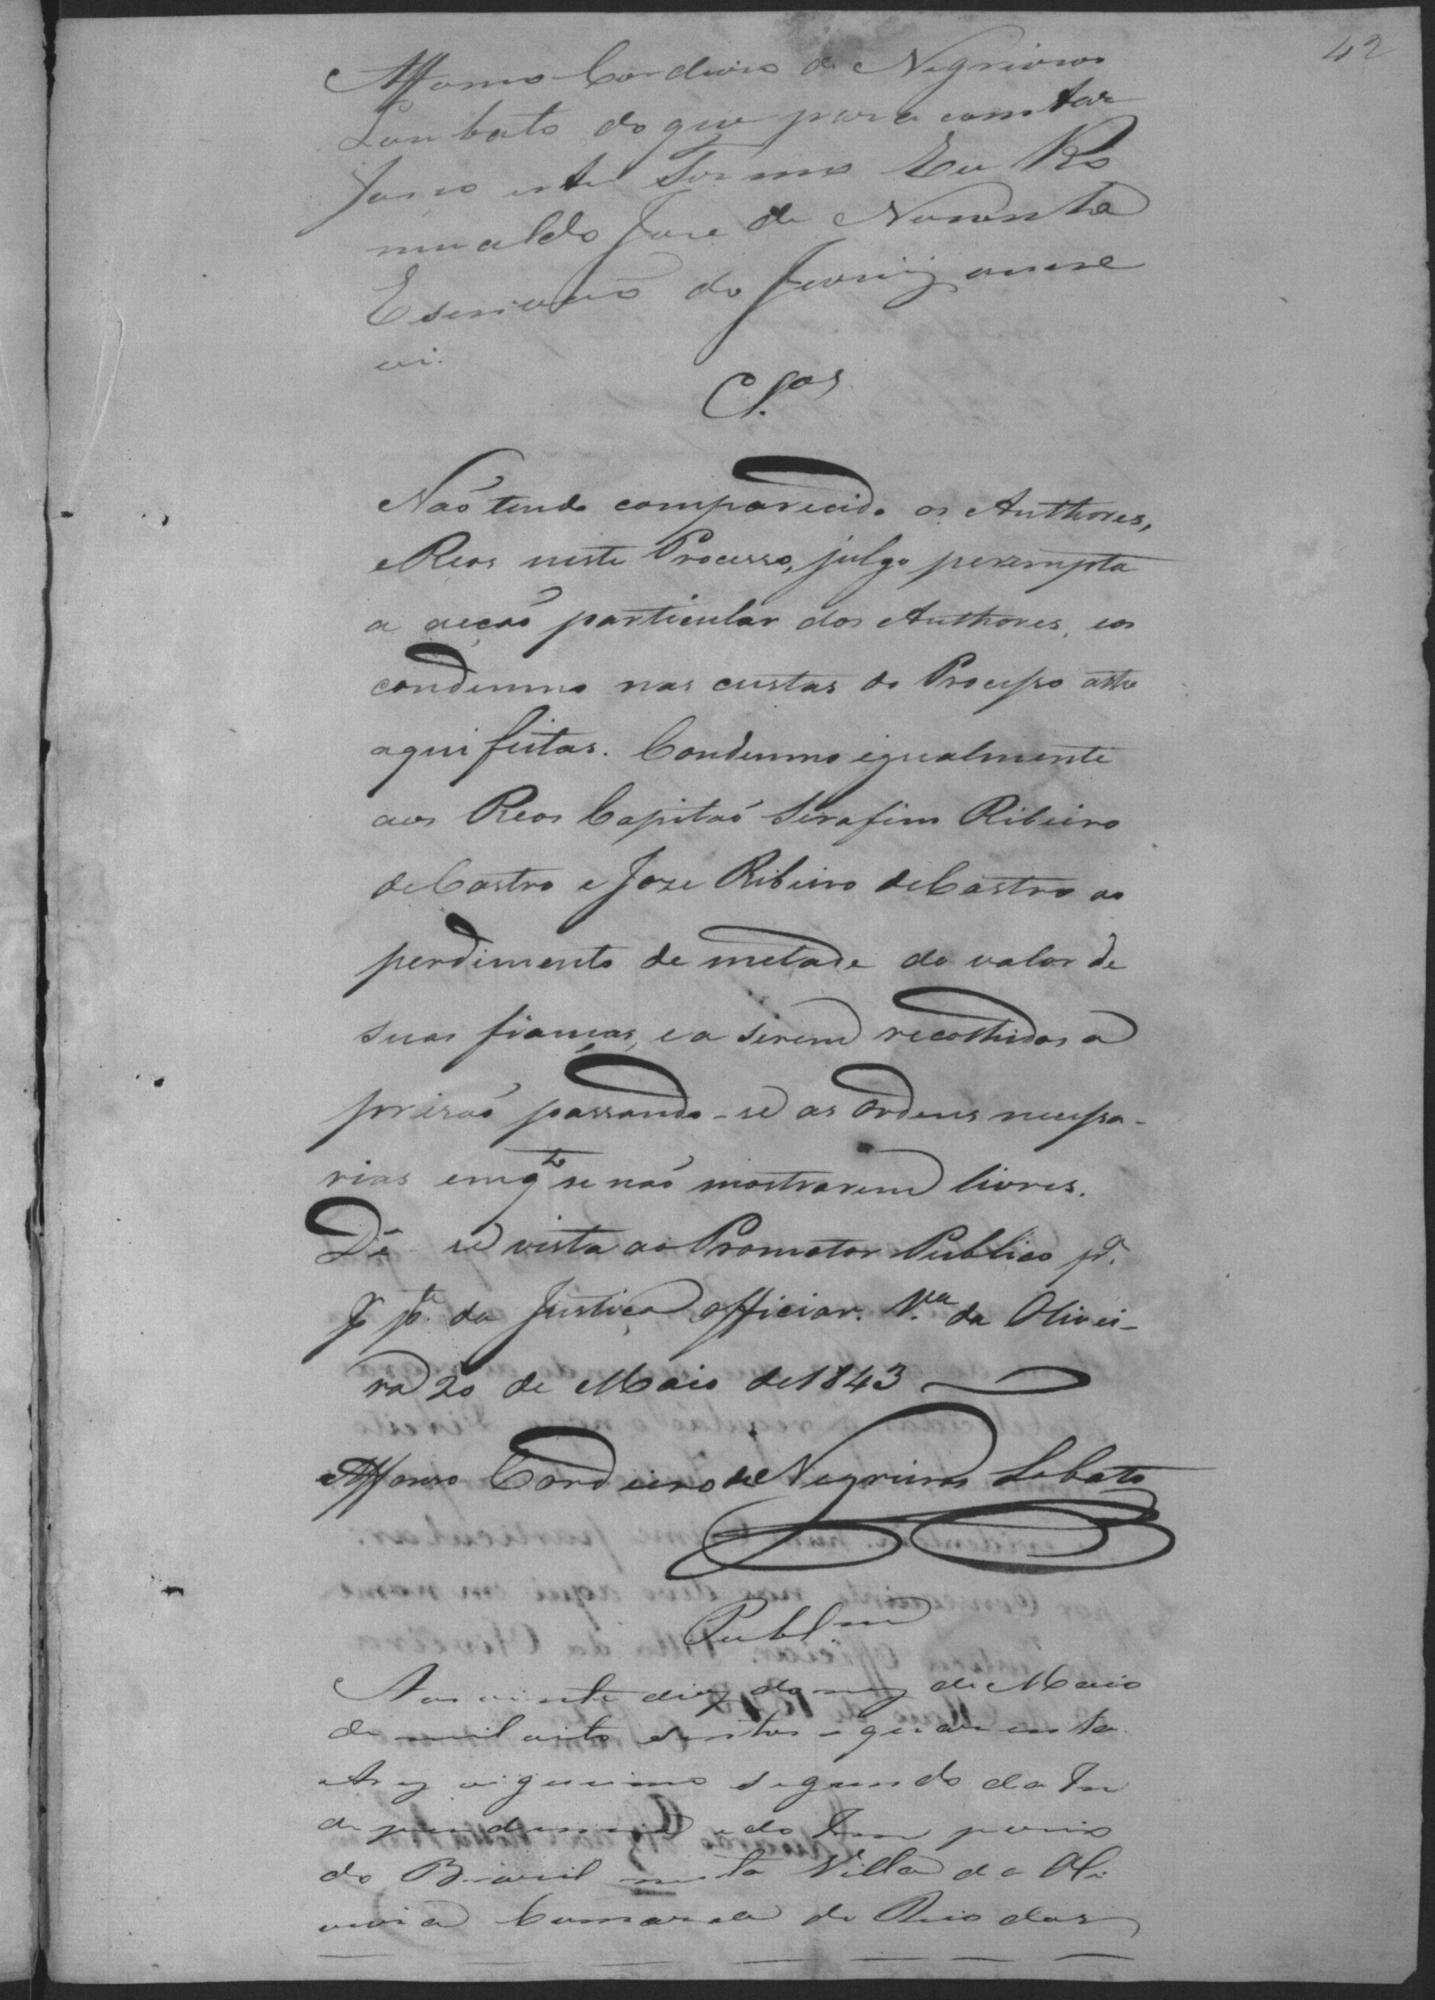 42
Affonso Cordeiro de Negreiros
Lonbato do que para constar
faço este Termo Eu Ro
mualdo Jose de Noronha
Escrivaõ do Juri q escre
vi.
Cl.os
Naõ tendo comparecido os Authores,
e Reos neste Processo, julgo perempta
a acçaõ particular dos Authores, e os
condemno nas custas do Processo athe
aqui feitas. Condemno igualmente
aos Reos Capitaõ Serafim Ribeiro
de Castro e Joze Ribeiro de Castro ao
perdimento de metade do valor de
suas fianças, e a serem recolhidos a
prizaõ passando-se as ordens necessa-
rias emq.to se naõ mostrarem livres.
Dê-se vista ao Promotor Publico p.a
p.r p.e da Justiça officiar. V.a da Olivei-
ra 20 de Maio de 1843
Affonso Cordeiro de Negreiros Lobato
Publ.m
Aos vinte dias do mez de Maio
de mil oito sentos e quarenta
e trez vigecimo segundo da In
dependencia e do Im perio
do Brasil nesta Villa da Oli
veira Comarca do Rio das